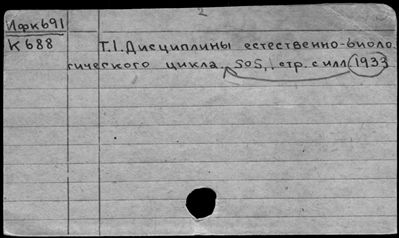 2
Ифк691
К688
Т.1. Дисциплины естественно-биоло
гического цикла. 505, стр. с илл 1933